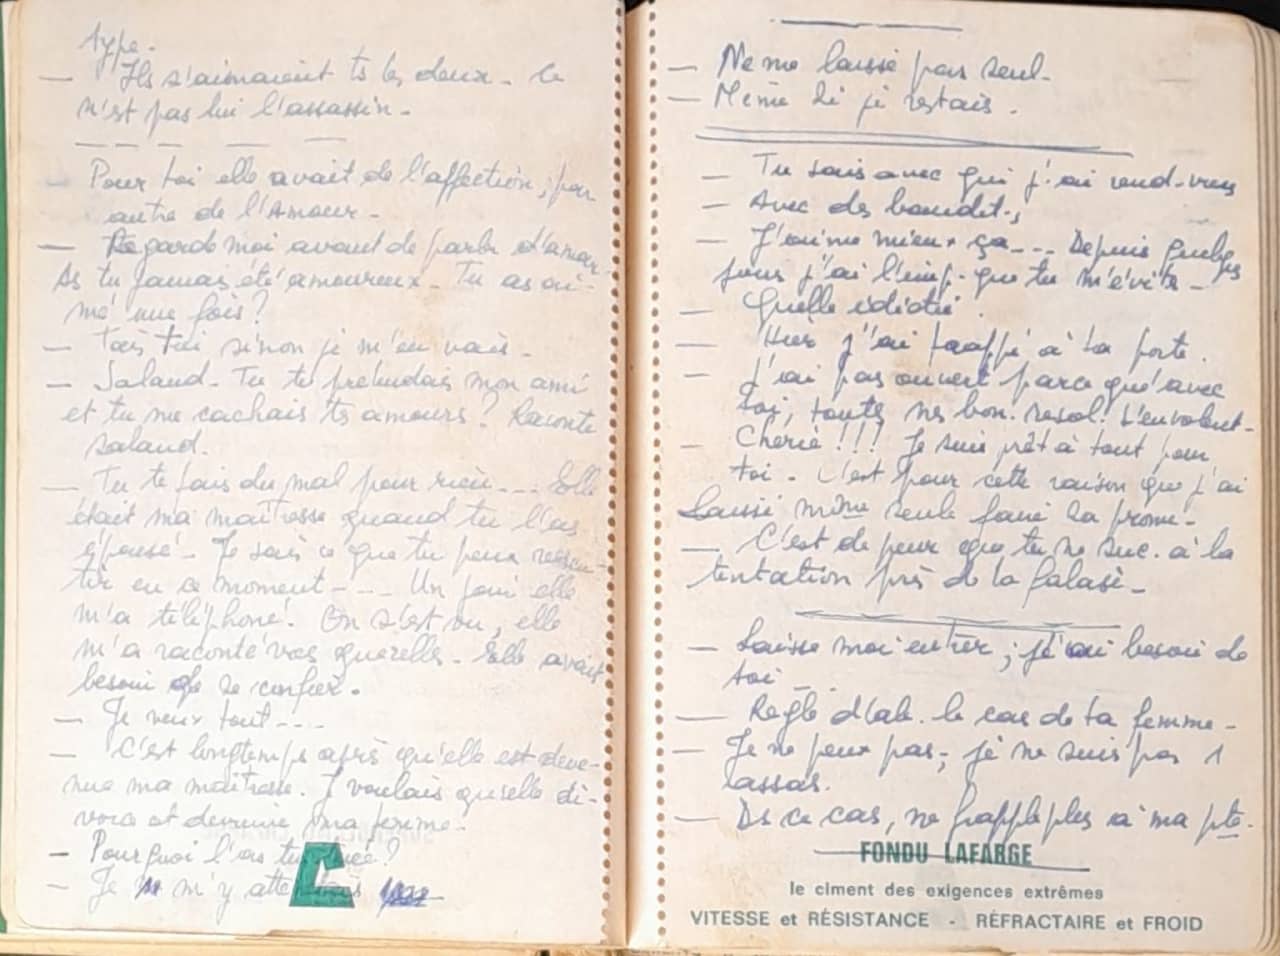 type.
— Ils s'aimaient ts les deux - ce
n'est pas lui l'assassin -
— Pour toi elle avait de l'affection ; pour
autre de l'Amour -
— Regarde moi avant de parler d'amour
As tu jamais été amoureux - Tu as ai-
mé une fois ?
— Tais toi sinon je m'en vais -
— Salaud - Tu te prétendais mon ami
et tu me cachais tes amours ? Raconte
salaud.
— Tu te fais du mal pour rien --- Elle
était ma maîtresse quand tu l'as
épousé - Je sais ce que tu peux ressen-
tir en ce moment --- Un jour elle
m'a téléphoné. On s'est vu, elle
m'a raconté vos querelles - Elle avait
besoin de se confier.
— Je veux tout ---
— C'est longtemps après qu'elle est deve-
nue ma maîtresse. J voulais qu'elle di-
vorce et devienne ma femme -
— Pourquoi l'as tu tuée ?
— Je m'y attendais
— Ne me laisse pas seul -
— Même si je restais.
— Tu sais avec qui j'ai rend-vous
— Avec des bandits
— J'aime mieux ça --- Depuis quelques
jours j'ai l'imp. que tu m'évites -
— Quelle idiotie.
— Hier j'ai frappé à ta porte.
— J'ai pas ouvert parce qu'avec
toi, toutes mes bon. resol. s'envolent -
— Chérie !!! Je suis prêt à tout pour
toi - C'est pour cette raison que j'ai
laissé seule faire sa prome -
— C'est de peur que tu ne suc. à la
tentation près de la falaise -
— Laisse moi entrer ; j'ai besoin de
toi -
— Règle d'ab. le cas de ta femme -
— Je ne peux pas ; je ne suis pas 1
assas.
— Ds ce cas, ne frappe plus à ma pte -
C
FONDU LAFARGE
le ciment des exigences extrêmes
VITESSE et RÉSISTANCE - RÉFRACTAIRE et FROID